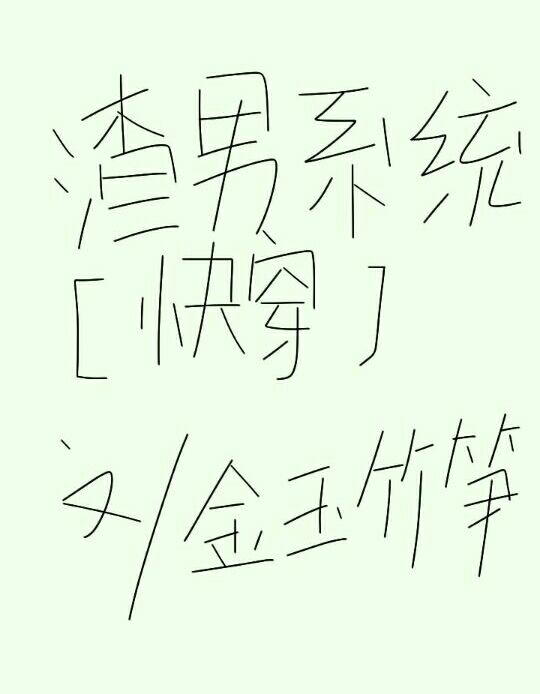 渣男系统
[快穿]
文/金玉竹笋